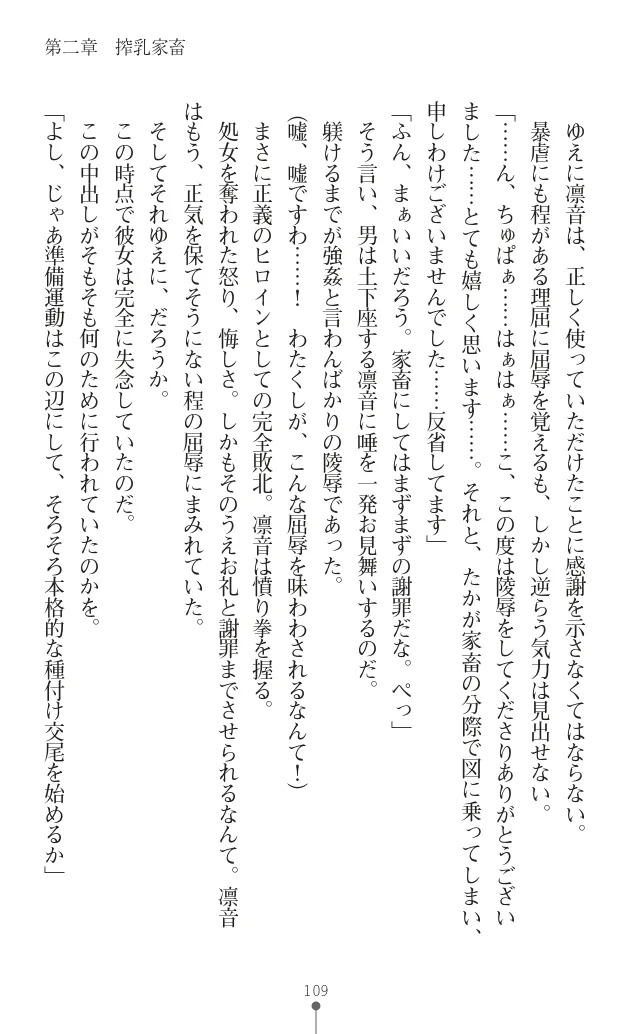 第二章　搾乳家畜
ゆえに凛音は、正しく使っていただけたことに感謝を示さなくてはならない。
暴虐にも程がある理屈に屈辱を覚えるも、しかし逆らう気力は見出せない。
「……ん、ちゅぱぁ……はぁはぁ……こ、この度は陵辱をしてくださりありがとうござい
ました……とても嬉しく思います……。それと、たかが家畜の分際で図に乗ってしまい、
申しわけございませんでした……反省してます」
「ふん、まぁいいだろう。家畜にしてはまずまずの謝罪だな。ぺっ」
そう言い、男は土下座する凛音に唾を一発お見舞いするのだ。
躾けるまでが強姦と言わんばかりの陵辱であった。
（嘘、嘘ですわ……！　わたくしが、こんな屈辱を味わわされるなんて！）
まさに正義のヒロインとしての完全敗北。凛音は憤り拳を握る。
処女を奪われた怒り、悔しさ。しかもそのうえお礼と謝罪までさせられるなんて。凛音
はもう、正気を保てそうにない程の屈辱にまみれていた。
そしてそれゆえに、だろうか。
この時点で彼女は完全に失念していたのだ。
この中出しがそもそも何のために行われていたのかを。
「よし、じゃあ準備運動はこの辺にして、そろそろ本格的な種付け交尾を始めるか」
109